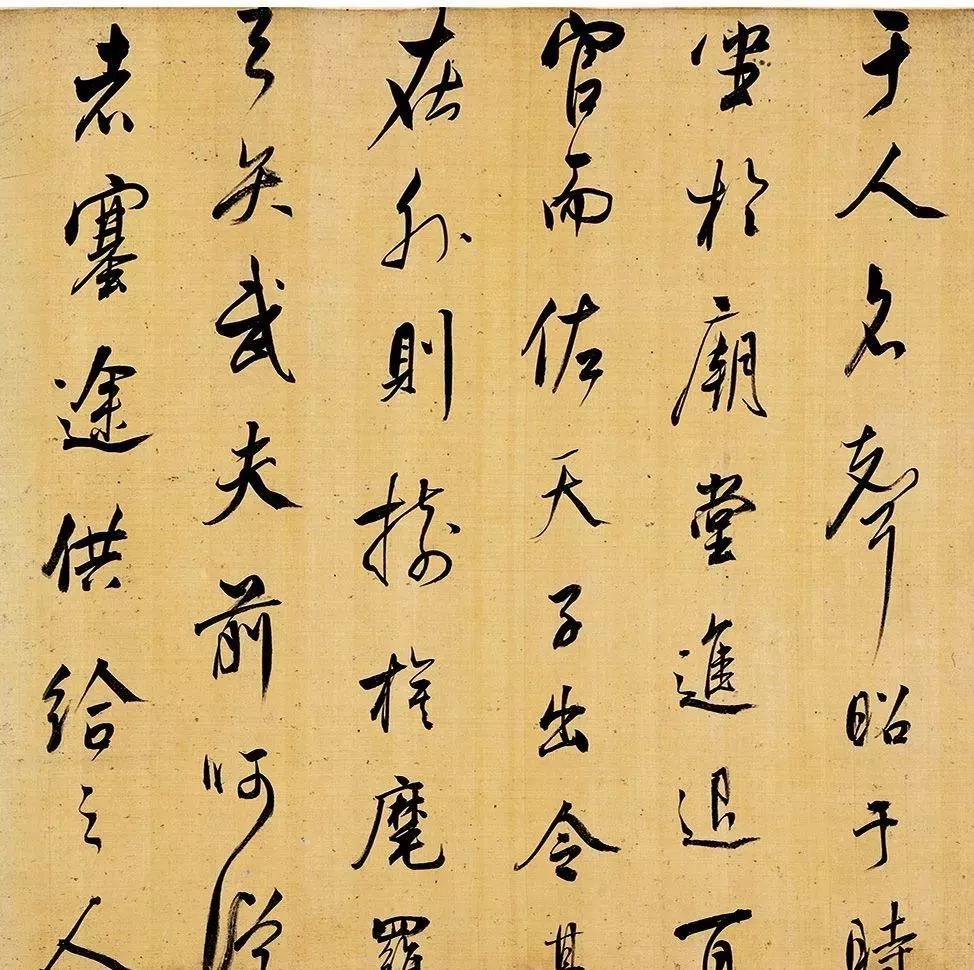 于人名聲昭于時
坐於廟堂進退百
官而佐天子出令其
在外則樹旗旄羅
弓矢武夫前呵從
者塞途供給之人